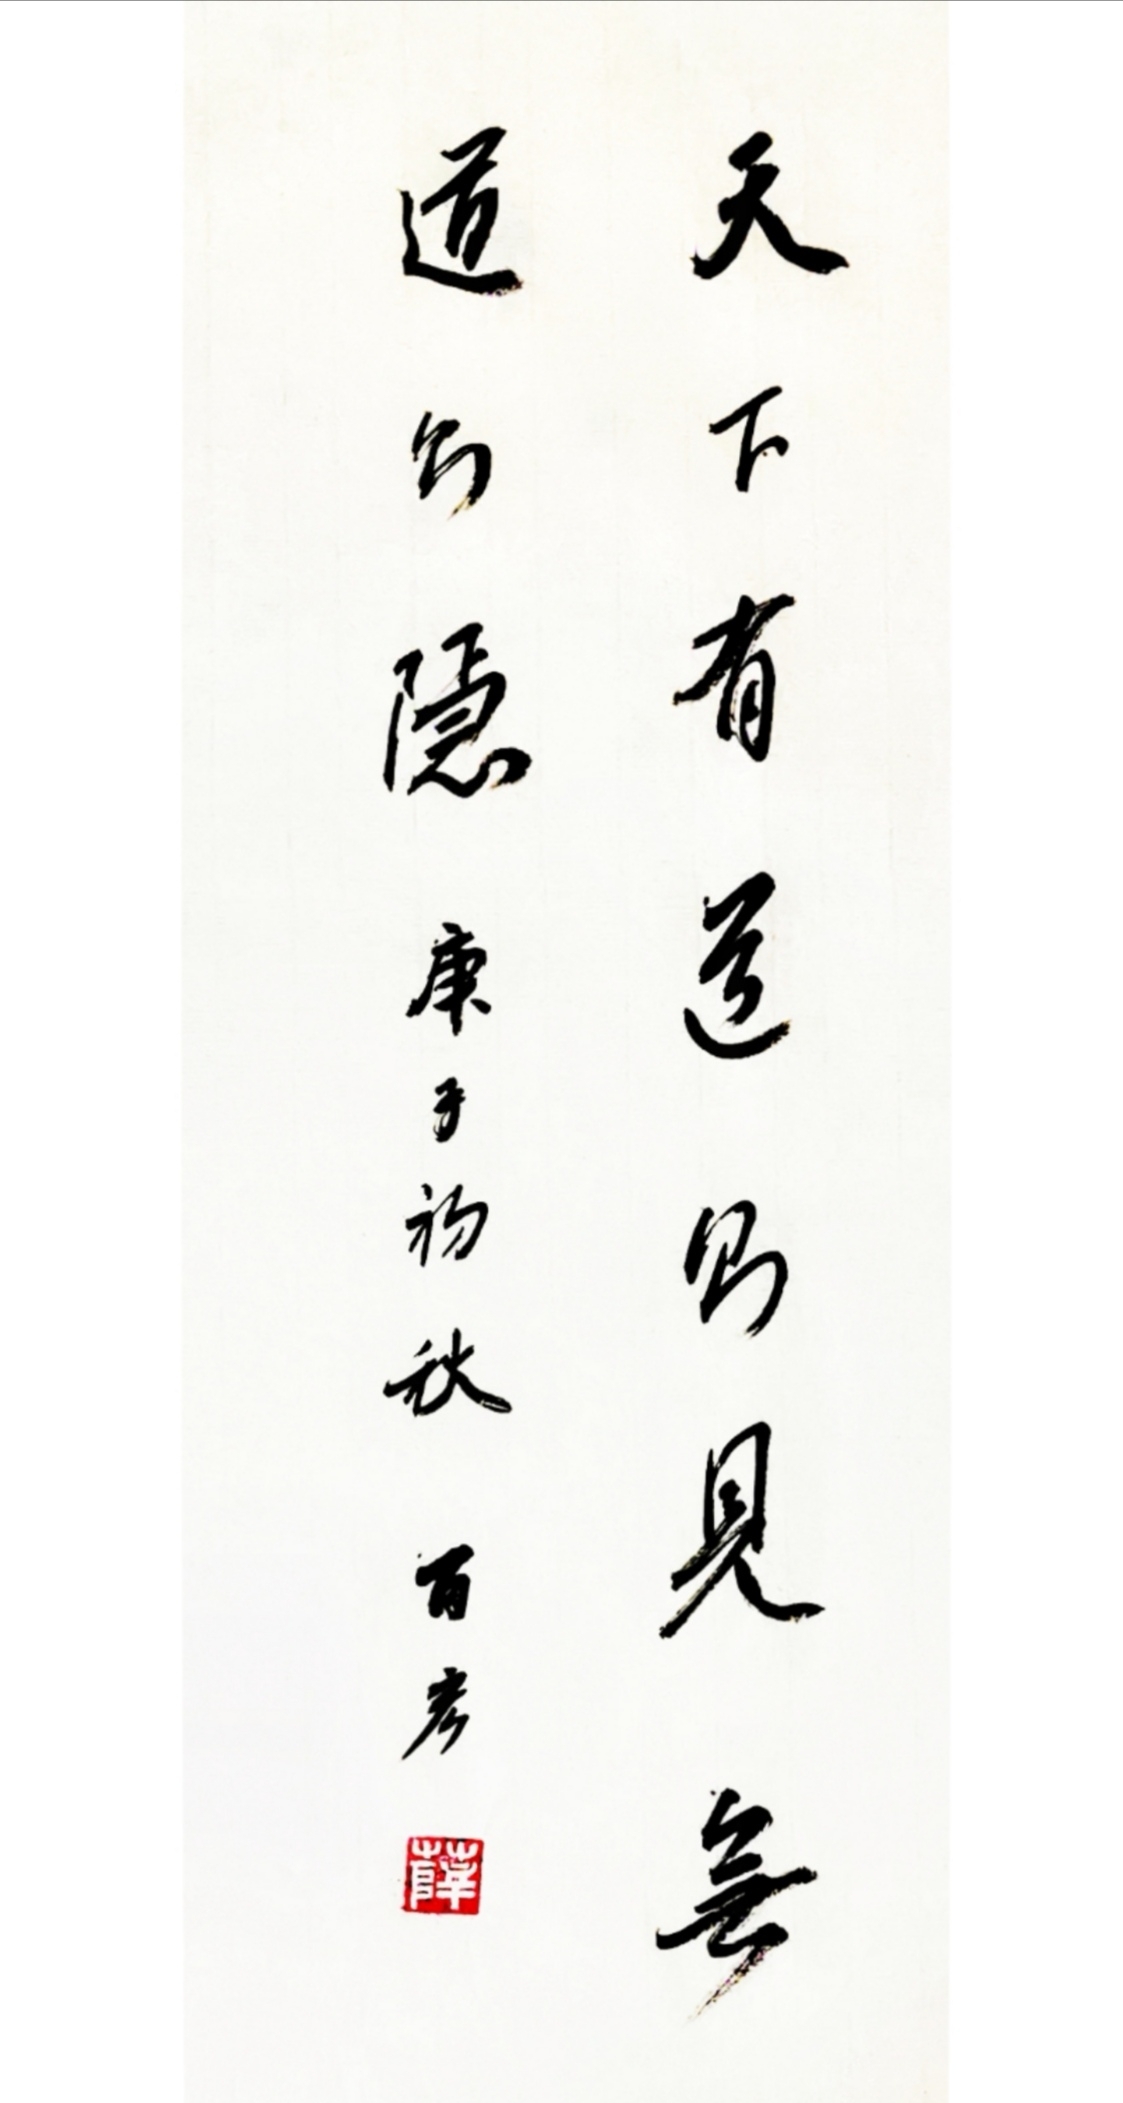 天下有道則見無
道則隱 庚子初秋 百彥
薛